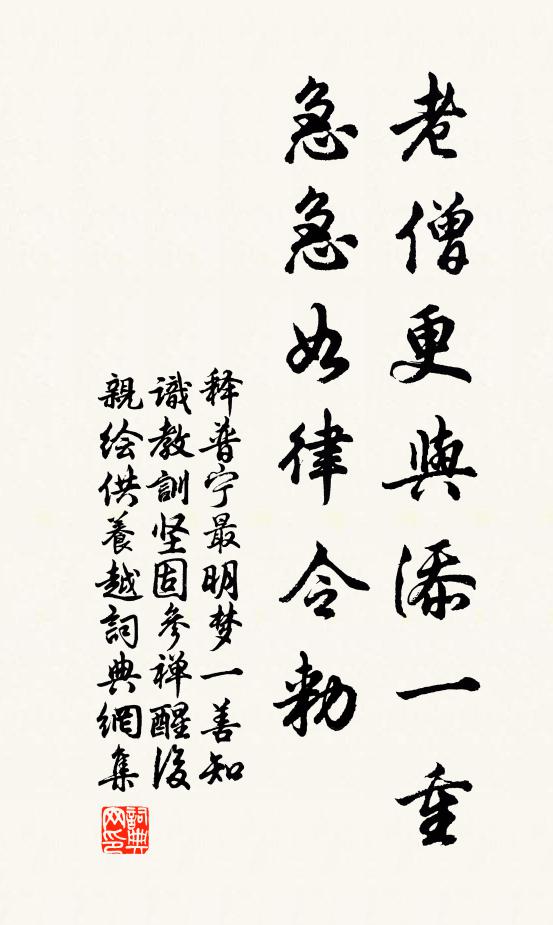 老僧更與添一重
急急如律令勅
释普宁最明梦一善知
識教訓坚固参禅醒後
親绘供養越詞典網集
詞典网印